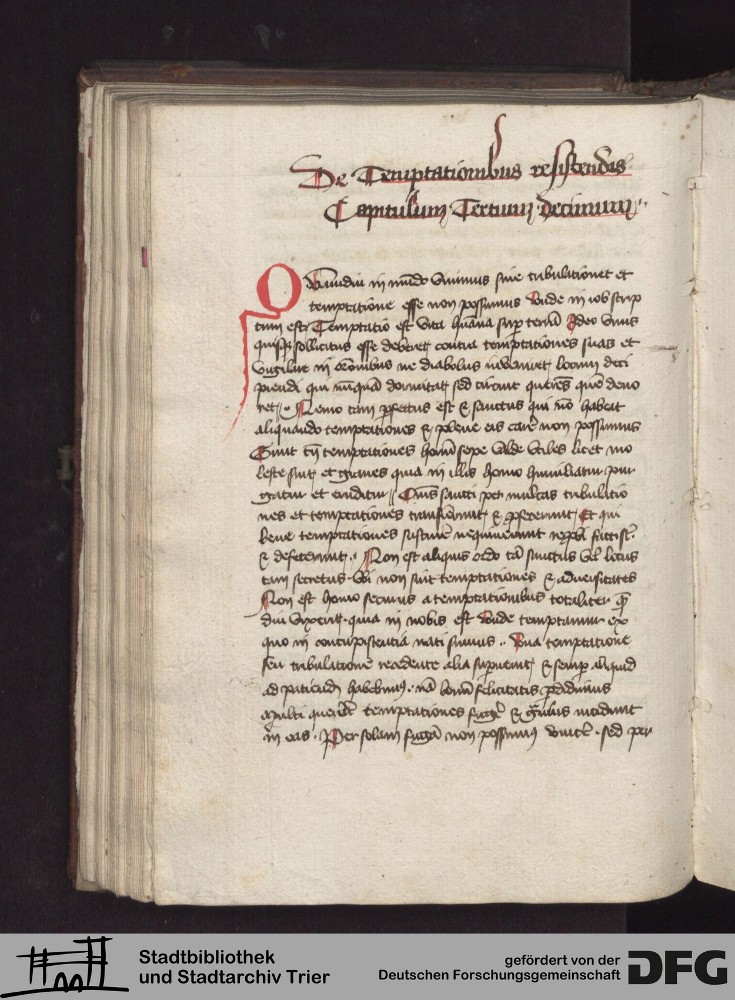 De Temptationibus resistendis
Capitulum Tertium decimum
Quamdiu in mundo vivimus sine tribulatione et
temptatione esse non possumus Unde in iob scrip
tum est Temptatio est vita humana sup terram Ideo vnus
quisque sollicitus esse deberet contra temptationes suas et
vigilare in oronibus ne diabolus inveniret locum deci
piendi qui nunquam dormitat sed circuit querens quem devo
ret Nemo tam perfectus est & sanctus qui non habeat
aliquando temptationes & plene eis carere non possumus
Sunt tamen temptationes homini sepe valde vtiles licet mo
leste sint et graves quia in illis homo humiliatur pur
gatur et eruditur Omnes sancti per multas tribulatio
nes et temptationes transierunt & profecerunt Et qui
bene temptationes sustinere nequiverunt reprobi facti sunt
& defecerunt Non est aliquis ordo tam sanctus vel locus
tam secretus vbi non sint temptationes & adversitates
Non est homo securus a temptationibus totaliter quam
diu vixerit quia in nobis est Unde temptamur ex
quo in concupiscentia nati sumus Una temptatione
seu tribulatione recedente alia superveniet & semper aliquid
ad patiendum habebimus nam bonum felicitatis perdidimus
Multi querunt temptationes fugere & gravius incidunt
in eas Per solam fugam non possumus vincere sed per
Stadtbibliothek
und Stadtarchiv Trier
gefördert von der
Deutschen Forschungsgemeinschaft
DFG